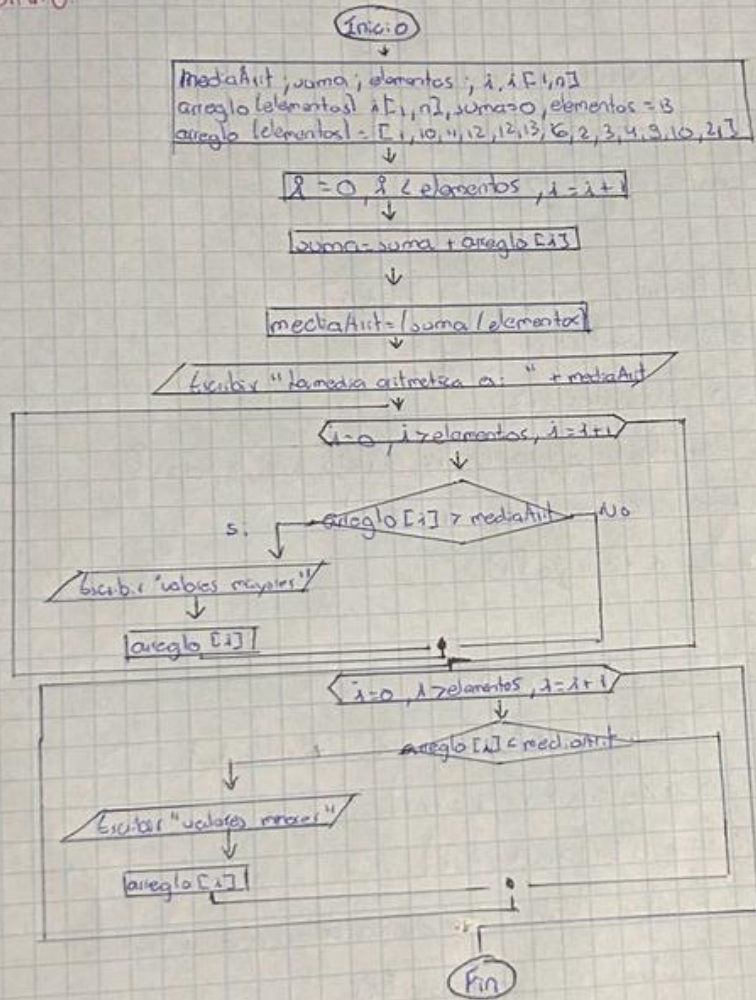 Inicio
mediaArit ; suma ; elementos ; i, i [1,n]
arreglo [elementos] i [1,n], suma=0, elementos = 13
arreglo [elementos] = [1, 10, 11, 12, 12, 13, 2, 3, 4, 9, 10, 2,]
i = 0, i < elementos , i = i + 1
suma=suma + arreglo [i]
mediaArit = (suma / elementos)
Escribir " La media aritmetica es: " + mediaArit
i=0, i > elementos, i = i+1
arreglo [i] > mediaArit
No
Si
Escribir "valores mayores"
arreglo [i]
i=0, i > elementos, i = i + 1
arreglo [i] < mediaArit
Escribir "valores menores"
arreglo [i]
Fin